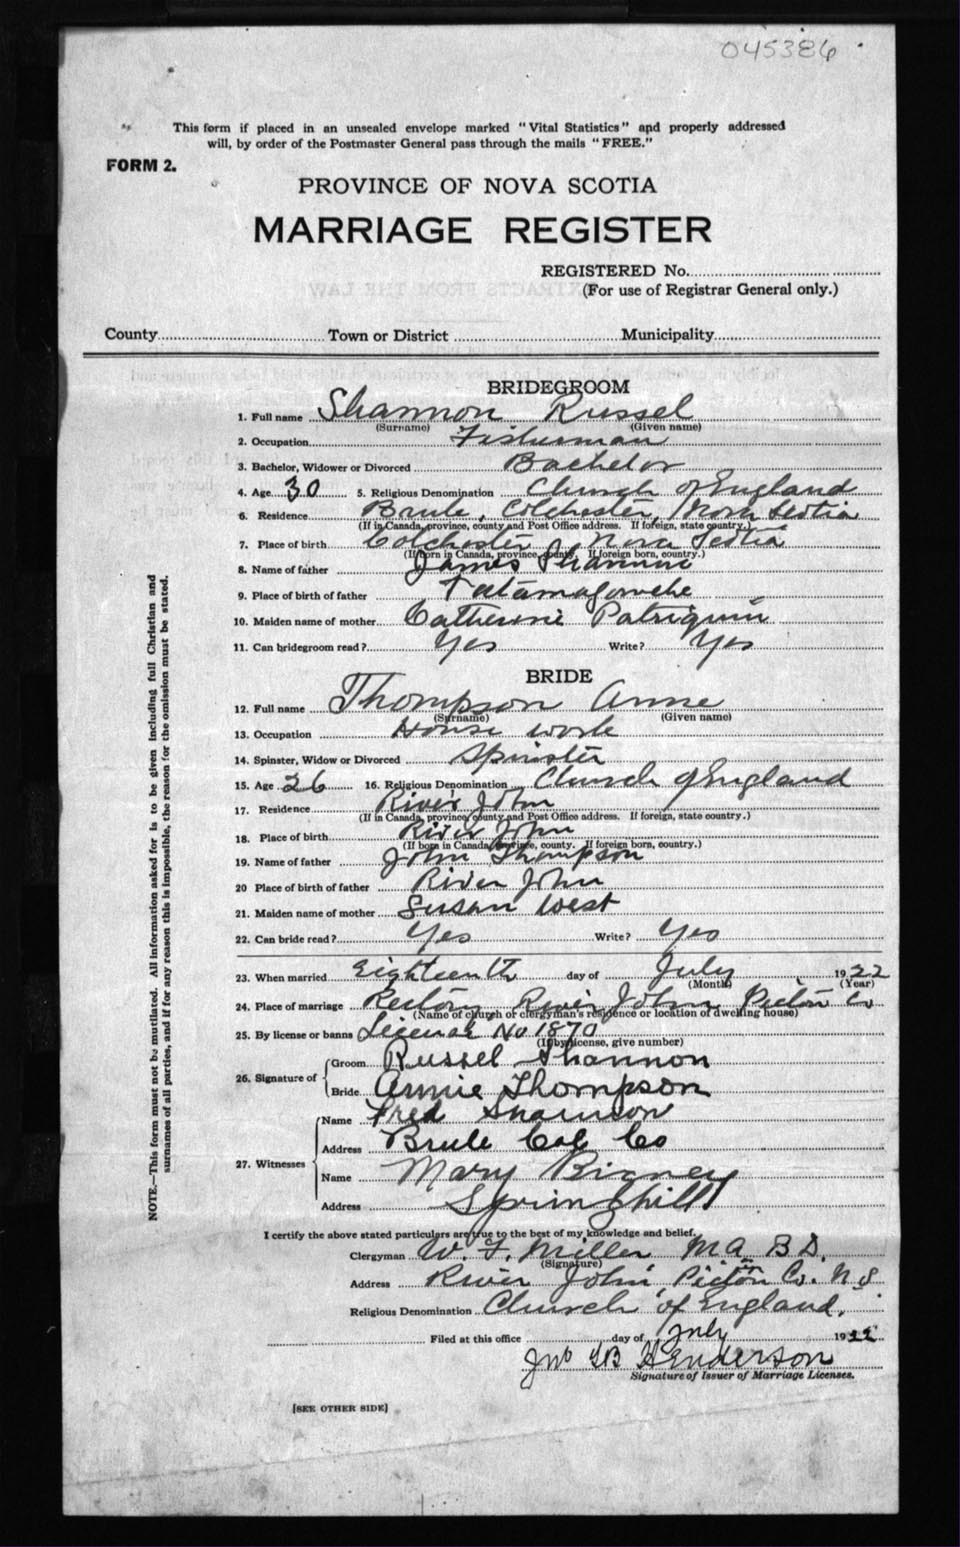 045386
This form if placed in an unsealed envelope marked "Vital Statistics" and properly addressed
will, by order of the Postmaster General pass through the mails "FREE."
FORM 2.
PROVINCE OF NOVA SCOTIA
MARRIAGE REGISTER
REGISTERED No.
(For use of Registrar General only.)
County Town or District Municipality
BRIDEGROOM
1. Full name Shannon Russel
(Surname) (Given name)
2. Occupation Fisherman
3. Bachelor, Widower or Divorced Bachelor
4. Age 30 5. Religious Denomination Church of England
6. Residence Brule, Colchester, Nova Scotia
(If in Canada, province, county and Post Office address. If foreign, state country.)
7. Place of birth Colchester Nova Scotia
(If born in Canada, province, county. If foreign born, country.)
8. Name of father James Shannon
9. Place of birth of father Tatamagouche
10. Maiden name of mother Catherine Patriquin
11. Can bridegroom read? Yes Write? Yes
BRIDE
12. Full name Thompson Annie
(Surname) (Given name)
13. Occupation House work
14. Spinster, Widow or Divorced Spinster
15. Age 26 16. Religious Denomination Church of England
17. Residence River John
(If in Canada, province, county and Post Office address. If foreign, state country.)
18. Place of birth River John
(If born in Canada, province, county. If foreign born, country.)
19. Name of father John Thompson
20 Place of birth of father River John
21. Maiden name of mother Susan West
22. Can bride read? Yes Write? Yes
23. When married Eighteenth day of July 1922
(Month) (Year)
24. Place of marriage Rectory River John Pictou Co
(Name of church or clergyman's residence or location of dwelling house)
25. By license or banns License No 1870
(If by license, give number)
26. Signature of Groom Russel Shannon
Bride Annie Thompson
27. Witnesses Name Fred Shannon
Address Brule Col Co
Name Mary Rigney
Address Springhill
I certify the above stated particulars are true to the best of my knowledge and belief.
Clergyman W. F. Miller M A B D.
(Signature)
Address River John, Pictou Co. N S
Religious Denomination Church of England.
Filed at this office day of July 1922
Jno Henderson
Signature of Issuer of Marriage Licenses.
[SEE OTHER SIDE]
NOTE.—This form must not be mutilated. All information asked for is to be given including full Christian and
surnames of all parties, and if for any reason this is impossible, the reason for the omission must be stated.